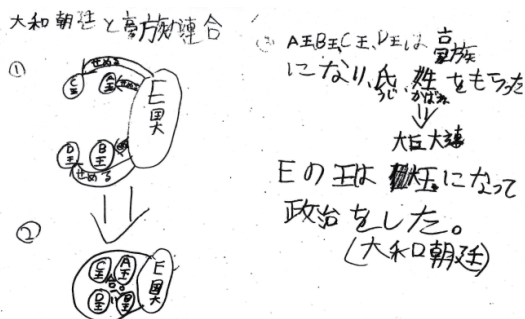 大和朝廷と豪族連合
①
せめる
せめる
C王
A王
E国
大
D王
B王
せめる
②
C王
A王
E国
大
D王
B王
③ A王B王、C王、D王は豪族
になり、氏 姓をもらった
うじ かばね
大臣大連
Eの王は 大王になって
政治をした。
(大和朝廷)